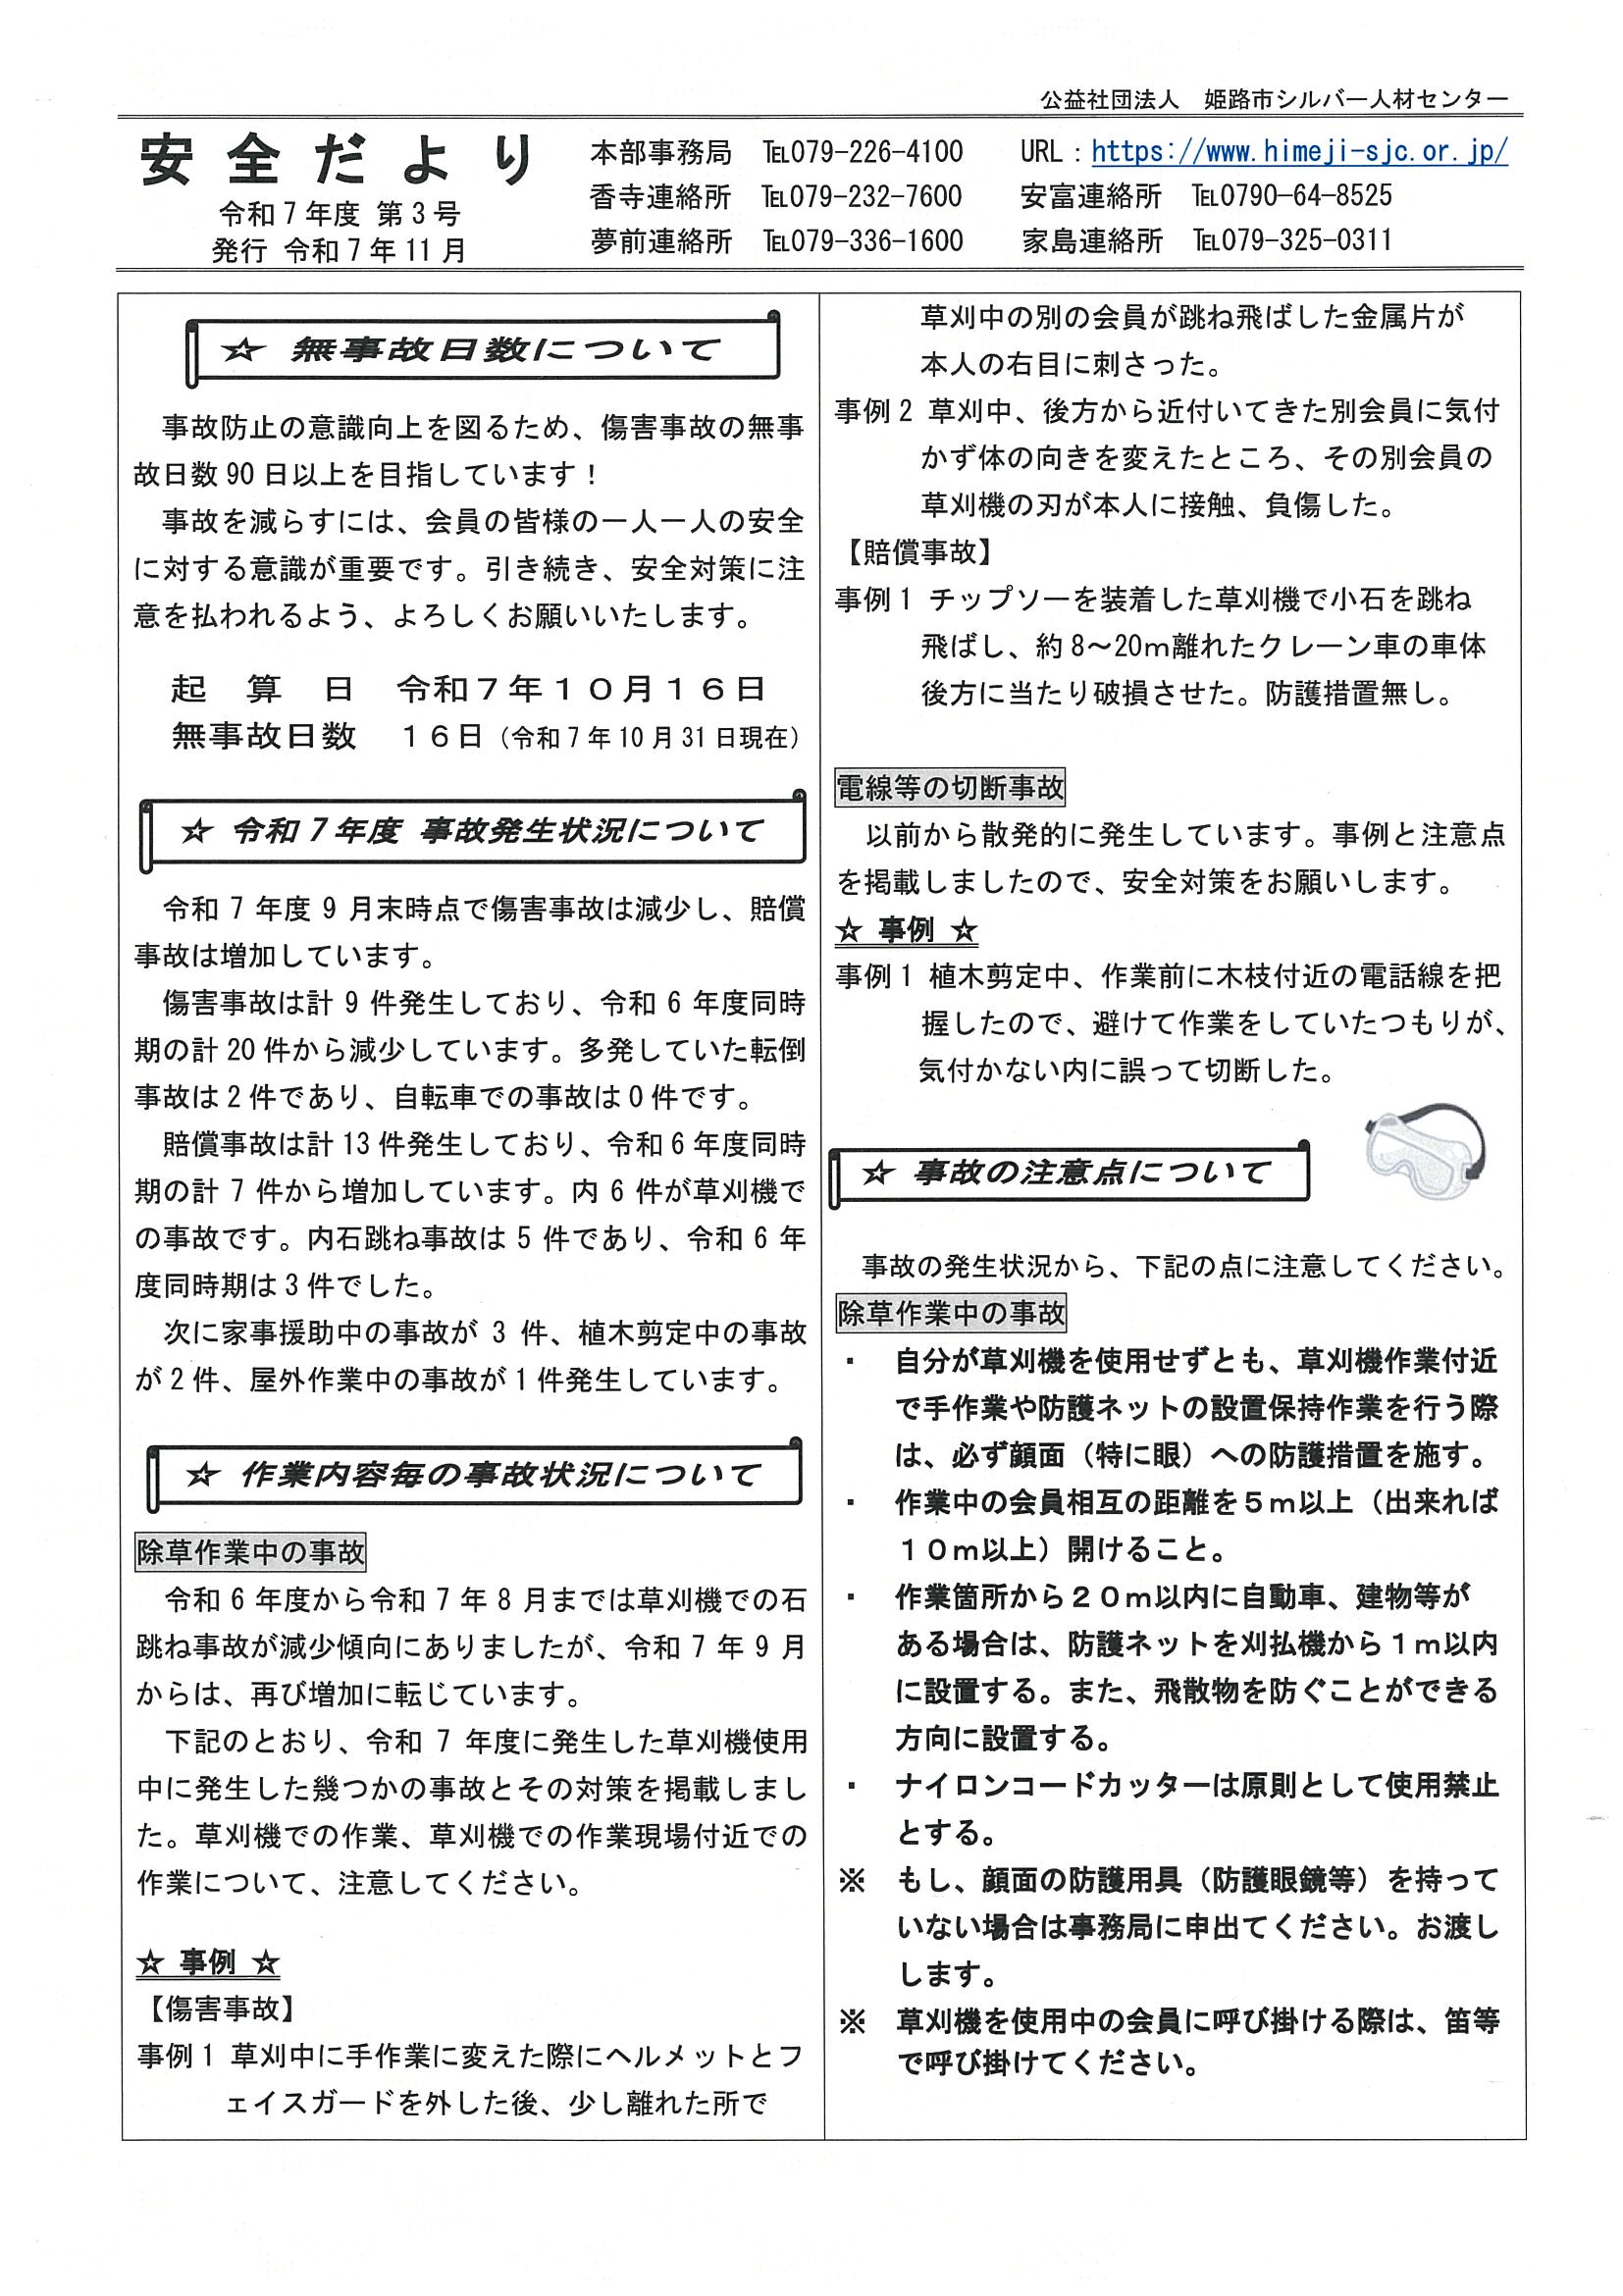 公益社団法人　姫路市シルバー人材センター
安全だより
令和7年度 第3号
発行 令和7年11月
本部事務局 ℡079-226-4100 URL：https://www.himeji-sjc.or.jp/
香寺連絡所 ℡079-232-7600 安富連絡所 ℡0790-64-8525
夢前連絡所 ℡079-336-1600 家島連絡所 ℡079-325-0311
☆ 無事故日数について
事故防止の意識向上を図るため、傷害事故の無事
故日数90日以上を目指しています！
事故を減らすには、会員の皆様の一人一人の安全
に対する意識が重要です。引き続き、安全対策に注
意を払われるよう、よろしくお願いいたします。
起　算　日　令和７年１０月１６日
無事故日数　１６日（令和7年10月31日現在）
☆ 令和7年度 事故発生状況について
令和 7 年度 9 月末時点で傷害事故は減少し、賠償
事故は増加しています。
傷害事故は計 9 件発生しており、令和 6 年度同時
期の計20件から減少しています。多発していた転倒
事故は2件であり、自転車での事故は0件です。
賠償事故は計13件発生しており、令和6年度同時
期の計 7 件から増加しています。内 6 件が草刈機で
の事故です。内石跳ね事故は 5 件であり、令和 6 年
度同時期は3件でした。
次に家事援助中の事故が 3 件、植木剪定中の事故
が2件、屋外作業中の事故が1件発生しています。
☆ 作業内容毎の事故状況について
除草作業中の事故
令和 6 年度から令和 7 年 8 月までは草刈機での石
跳ね事故が減少傾向にありましたが、令和 7 年 9 月
からは、再び増加に転じています。
下記のとおり、令和 7 年度に発生した草刈機使用
中に発生した幾つかの事故とその対策を掲載しまし
た。草刈機での作業、草刈機での作業現場付近での
作業について、注意してください。
☆ 事例 ☆
【傷害事故】
事例1 草刈中に手作業に変えた際にヘルメットとフ
ェイスガードを外した後、少し離れた所で
草刈中の別の会員が跳ね飛ばした金属片が
本人の右目に刺さった。
事例2 草刈中、後方から近付いてきた別会員に気付
かず体の向きを変えたところ、その別会員の
草刈機の刃が本人に接触、負傷した。
【賠償事故】
事例1 チップソーを装着した草刈機で小石を跳ね
飛ばし、約8～20m離れたクレーン車の車体
後方に当たり破損させた。防護措置無し。
電線等の切断事故
以前から散発的に発生しています。事例と注意点
を掲載しましたので、安全対策をお願いします。
☆ 事例 ☆
事例1 植木剪定中、作業前に木枝付近の電話線を把
握したので、避けて作業をしていたつもりが、
気付かない内に誤って切断した。
☆ 事故の注意点について
事故の発生状況から、下記の点に注意してください。
除草作業中の事故
・ 自分が草刈機を使用せずとも、草刈機作業付近
で手作業や防護ネットの設置保持作業を行う際
は、必ず顔面（特に眼）への防護措置を施す。
・ 作業中の会員相互の距離を５ｍ以上（出来れば
１０ｍ以上）開けること。
・ 作業箇所から２０ｍ以内に自動車、建物等が
ある場合は、防護ネットを刈払機から１ｍ以内
に設置する。また、飛散物を防ぐことができる
方向に設置する。
・ ナイロンコードカッターは原則として使用禁止
とする。
※ もし、顔面の防護用具（防護眼鏡等）を持って
いない場合は事務局に申出てください。お渡し
します。
※ 草刈機を使用中の会員に呼び掛ける際は、笛等
で呼び掛けてください。